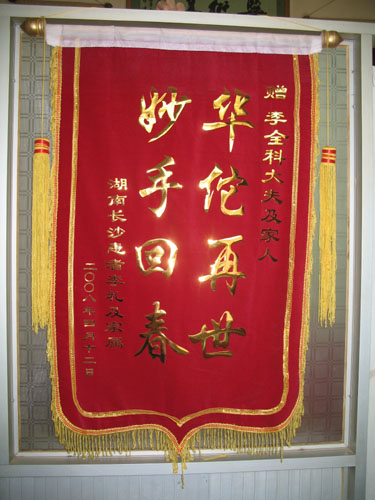 赠 李全科大夫及家人
华佗再世
妙手回春
湖南长沙患者李礼及家属
二〇〇八年四月十二日